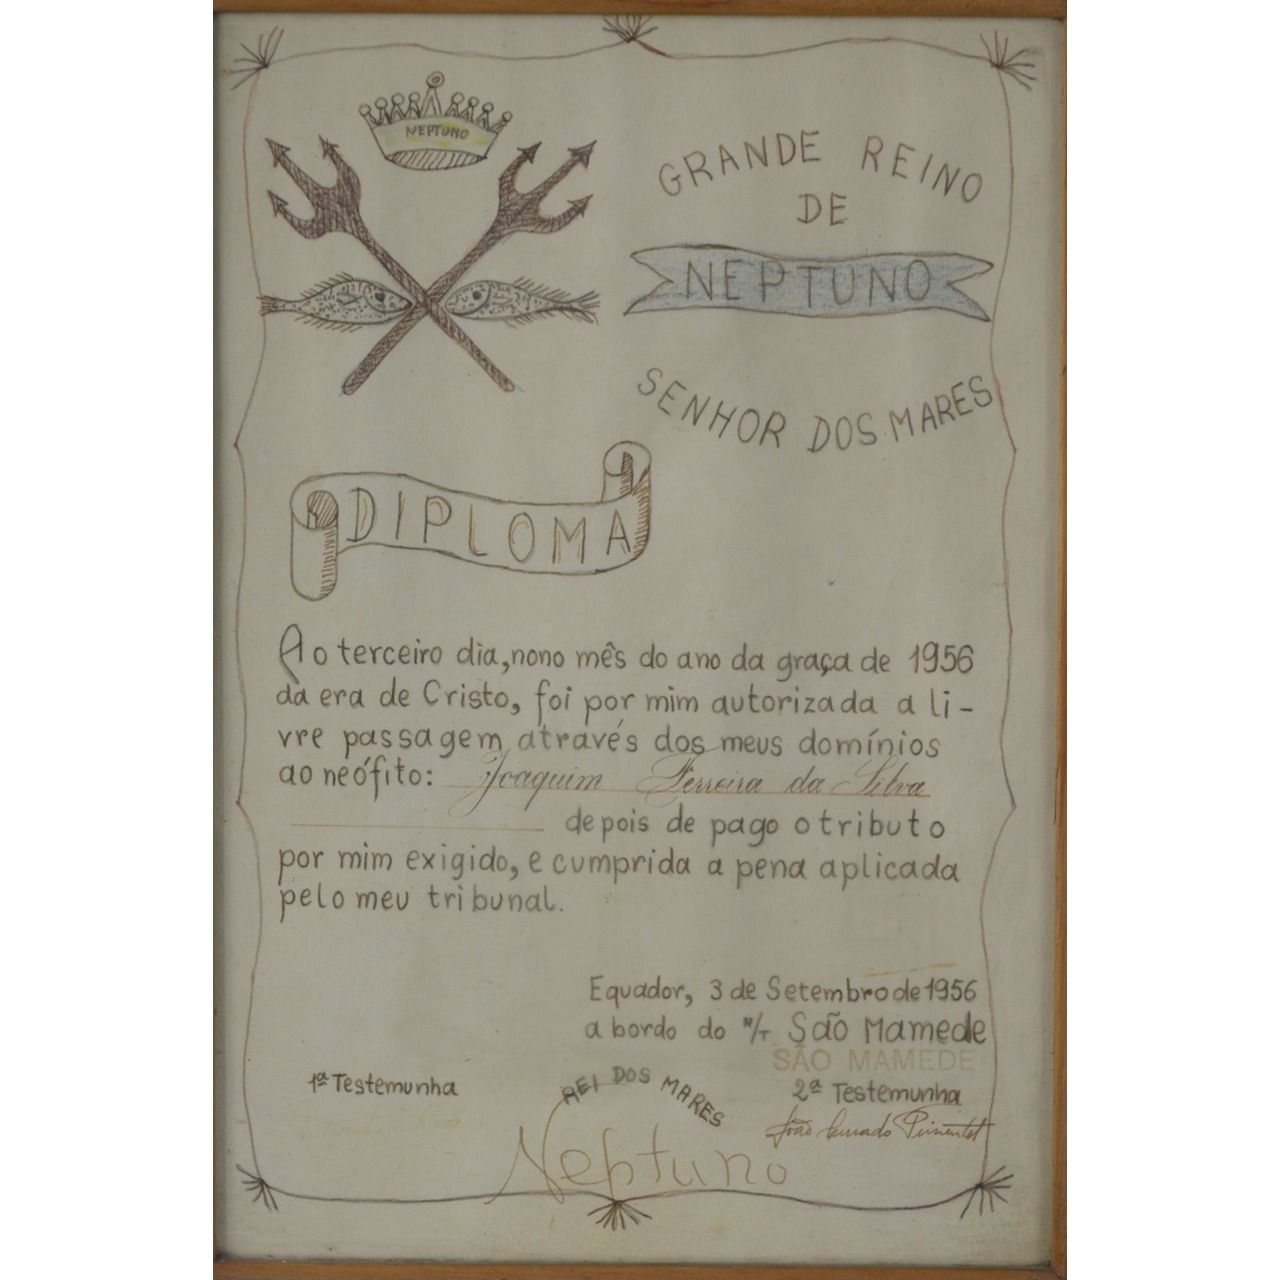 NEPTUNO
GRANDE REINO
DE
NEPTUNO
SENHOR DOS MARES
DIPLOMA
Ao terceiro dia, nono mês do ano da graça de 1956
da era de Cristo, foi por mim autorizada a li-
vre passagem através dos meus domínios
ao neófito: Joaquim Ferreira da Silva
depois de pago o tributo
por mim exigido, e cumprida a pena aplicada
pelo meu tribunal.
Equador, 3 de Setembro de 1956
a bordo do N/T São Mamede
SÃO MAMEDE
1ª Testemunha
REI DOS MARES
2ª Testemunha
João Pimentel
Neptuno